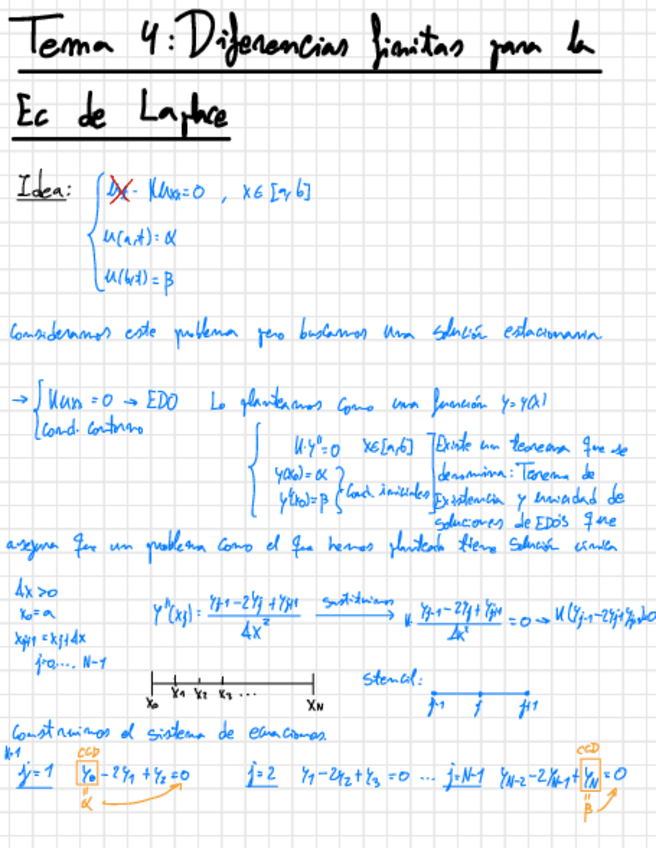 Tema 4: Diferencias finitas para la
Ec de Laplace
Idea: { - Kuxx = 0 , x ∈ [a, b]
u(a,t) = α
u(b,t) = β
Consideramos este problema pero buscamos una solución estacionaria.
→ { Kuxx = 0 → EDO Lo planteamos como una función y = y(x)
Cond. contorno
{ K·y'' = 0 x ∈ [a, b] ] Existe un teorema que se
y(x₀) = α } Cond. iniciales denomina: Teorema de
y'(x₀) = β Existencia y unicidad de
soluciones de EDO's que
asegura que un problema como el que hemos planteado tiene solución única
Δx > 0
x₀ = a
xj+1 = xj + Δx
j = 0, ... N-1
y''(xj) = (yj-1 - 2yj + yj+1) / Δx² sustituimos → K · (yj-1 - 2yj + yj+1) / Δx² = 0 → K(yj-1 - 2yj + yj+1) = 0
x₀ x₁ x₂ x₃ ... xN
Stencil: j-1 j j+1
Construimos el sistema de ecuaciones.
K=1
CCD CCD
j = 1 y₀ - 2y₁ + y₂ = 0 j = 2 y₁ - 2y₂ + y₃ = 0 ... j = N-1 yN-2 - 2yN-1 + yN = 0
= α = β